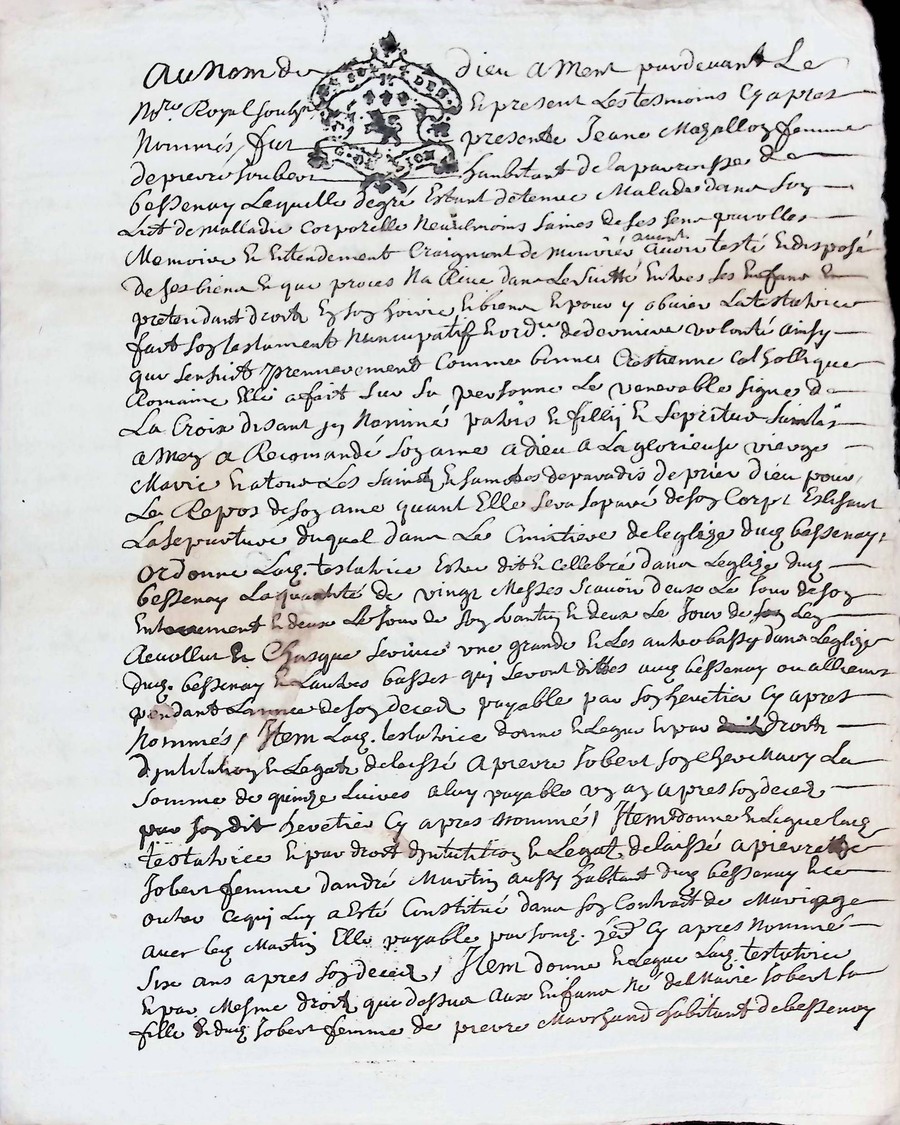 Au Nom de dieu amen pardevant Le
No.re Royal soubne Et present Les tesmoins Cy apres
Nommés fut presente Jeane Mazalloy femme
de pierre Joubert habitant de la parroisse de
bessenay Lequelle de gré Estant detenue Malade dans Soy
Lict de Malladie Corporelle Neaulmoins Saines de Ses Sens parolles
Memoire Et Entendement Craignant de mourir avant Avoir testé Et disposé
de Ses biens Et que proces Na Rive dans Le Entres Ses Enfans Et
pretendant droit En Soy hoirie Et biens Et pour y obvier La testatrice
fait Soy testament Nuncupatif Et ord.re de derniere volonté ainsy
que Sensuit premierement Comme bonne Crestienne Catholique
Romaine Elle a fait Sur Sa personne Le venerable Signe de
La Croix disant patris Et filly Et Sepritus Saintis
amen a Recomandé Soy ame a dieu a La glorieuse vierge
Marie Et a tous Les Saints Et Saintes de paradis de prier Dieu pour
Le Repos de Soy ame quant Elle Sera Separé de Soy Corps Eslisant
La Sepurture duquel dans Le Cimitiere de leglize dud bessenay
Ordonne Lad. testatrice Estre dit Et Cellebré dans Leglize dud
bessenay La quantité de vingt Messes Scavoir deux Le Jour de Soy
Enterrement Et deux Le Jour de Soy Et deux Le Jour de Soy
Revollut Et Chasque Service une grande Et Les autres basses dans Leglize
dud. bessenay Et Lautres basses qui Seront dittes aud bessenay ou allieurs
pendant Lannee de Soy deced payable par Soy heretier Cy apres
Nommés / Item Lad. testatrice donne Et Legue Et par droit
dintitution Et Legat delaissé A pierre Jobert Soy cher Mary La
Somme de quinze Livres a luy payable un an apres Soy deced
par Soy dit heretier Cy apres Nommé / Item donne Et Legue Lad
testatrice Et par droit dintitution Et Legat delaissé a pierrette
Jobert femme dandré Martin aussy habitant dud bessenay Et ce
outre Ce qui Luy a Esté Constitué dans Soy Contract de Mariage
avec Led Martin Elle payable par Sond. Cy apres Nommé
Six ans apres Soy deced / Item donne Et Legue Lad. testatrice
Et par Mesme droit que dessus aux Enfans Né de Marie Jobert Sa
fille Et dud Jobert femme de pierre Marchand habitant de bessenay